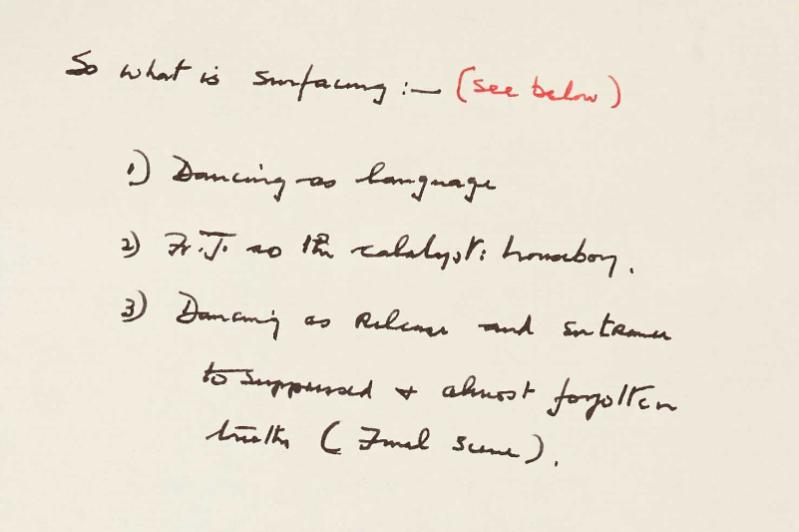 So what is surfacing :— (see below)
1) Dancing as language
2) Fr. J. as the catalyst: homeboy.
3) Dancing as release and entrance
to suppressed + almost forgotten
truths (Final scene).